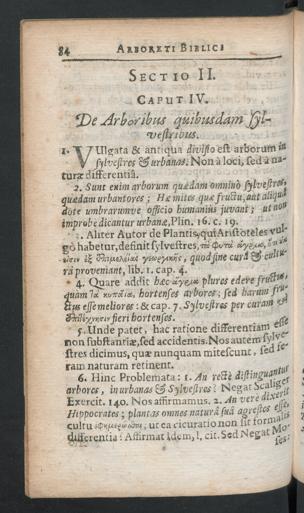 84 ARBORETI BIBLICI
SECTIO II.
CAPUT IV.
De Arboribus quibusdam syl-
vestribus.
1. VUlgata & antiqua divisio est arborum in
sylvestres & urbanas. Non à loci, sed à na-
turæ differentiâ.
2. Sunt enim arborum quædam omninò sylvestres,
quædam urbaniores; Hæ mites quæ fructu, aut aliquâ
dote umbrarumve officio humaniùs juvant; ut non
improbè dicantur urbanæ, Plin. 16. c. 19.
3. Aliter Autor de Plantis, qui Aristoteles vul-
gò habetur, definit sylvestres, τὰ φυτὰ ἄγρια,
ἐξ ἐπιμελείας γεωργικῆς, quod sine curâ & cultu-
râ proveniant, lib. 1. cap. 4.
4. Quare addit hæc ἄγρια plures edere fructus,
quam τὰ κηπαῖα, hortenses arbores; sed harum fru-
ctus esse meliores: & cap. 7. Sylvestres per curam &
fieri hortenses.
5. Unde patet, hac ratione differentiam esse
non substantiæ, sed accidentis. Nos autem sylve-
stres dicimus, quæ nunquam mitescunt, sed fe-
ram naturam retinent.
6. Hinc Problemata: 1. An rectè distinguantur
arbores, in urbanas & Sylvestres? Negat Scaliger
Exercit. 140. Nos affirmamus. 2. An verè dixerit
Hippocrates; plantas omnes naturâ suâ agrestes esse,
cultu ut ea cicuratio non sit formalis
differentia? Affirmat Idem, l. cit. Sed Negat Mo-
ses: